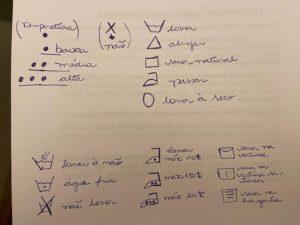 (Temperatura)
baixa
média
alta
(não)
lavar
alvejar
secar natural
passar
lavar à seco
lavar à mão
água fria
não lavar
máx 110°C
máx 150°C
máx 200°C
secar na
vertical
secar na
vertical
secar na
horizontal